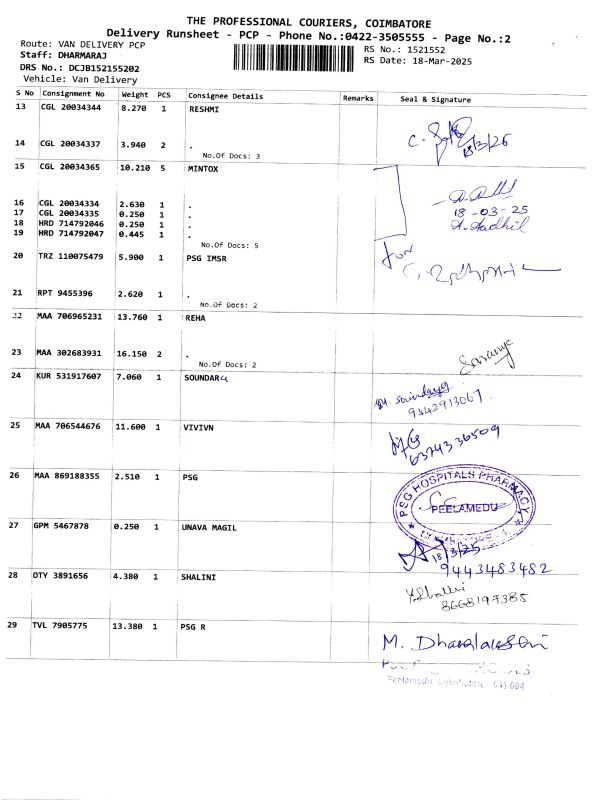 THE PROFESSIONAL COURIERS, COIMBATORE
Delivery Runsheet - PCP - Phone No.:0422-3505555 - Page No.:2
Route: VAN DELIVERY PCP
Staff: DHARMARAJ
DRS No.: DCJB152155202
Vehicle: Van Delivery
RS No.: 1521552
RS Date: 18-Mar-2025
S No Consignment No Weight PCS Consignee Details Remarks Seal & Signature
13 CGL 20034344 8.270 1 RESHMI
14 CGL 20034337 3.940 2 .
No.Of Docs: 3
15 CGL 20034365 10.210 5 MINTOX
16 CGL 20034334 2.630 1 .
17 CGL 20034335 0.250 1 .
18 HRD 714792046 0.250 1 .
18-03-25
19 HRD 714792047 0.445 1 .
A. Aadhil
No.Of Docs: 5
20 TRZ 110075479 5.900 1 PSG IMSR
21 RPT 9455396 2.620 1 .
No.Of Docs: 2
22 MAA 706965231 13.760 1 REHA
23 MAA 302683931 16.150 2 .
Saranya
No.Of Docs: 2
24 KUR 531917607 7.060 1 SOUNDAR
9842913067
25 MAA 706544676 11.600 1 VIVIVN
6374336509
26 MAA 869188355 2.510 1 PSG
PSG HOSPITALS PHARMACY
PEELAMEDU
27 GPM 5467878 0.250 1 UNAVA MAGIL
18/3/25
9443483482
28 OTY 3891656 4.380 1 SHALINI
8668197385
29 TVL 7905775 13.380 1 PSG R
Peelamedu Coimbatore 641 004